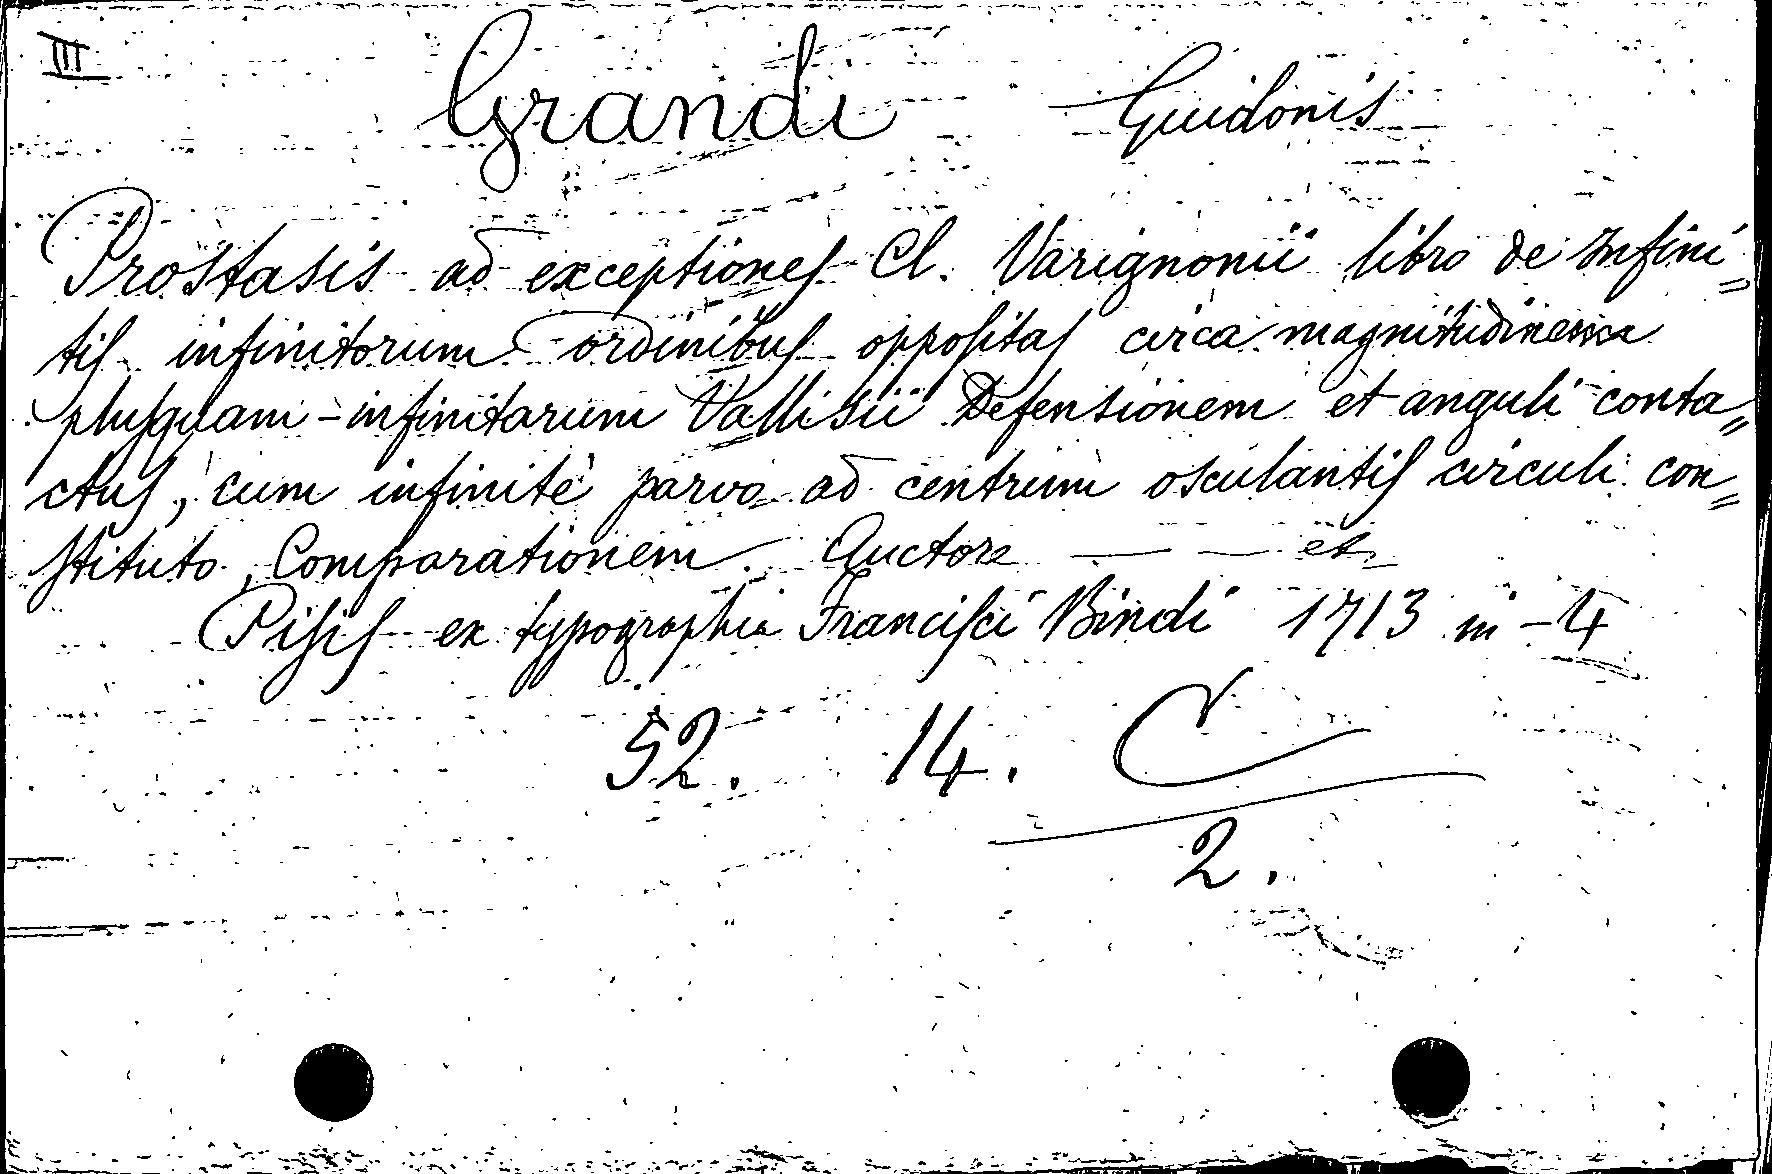 III
Grandi Guidonis
Prostasis ad exceptiones Cl. Varignonii libro de Infini=
tis infinitorum ordinibus oppositas circa magnitudinem
plusquam-infinitarum Vallisii Defensionem et anguli conta=
ctus, cum infinitè parvo ad centrum osculantis circuli con=
stituto, Comparationem. Auctore — — etc
Pisis ex typographia Francisci Bindi 1713 in-4
52. 14. C
2.